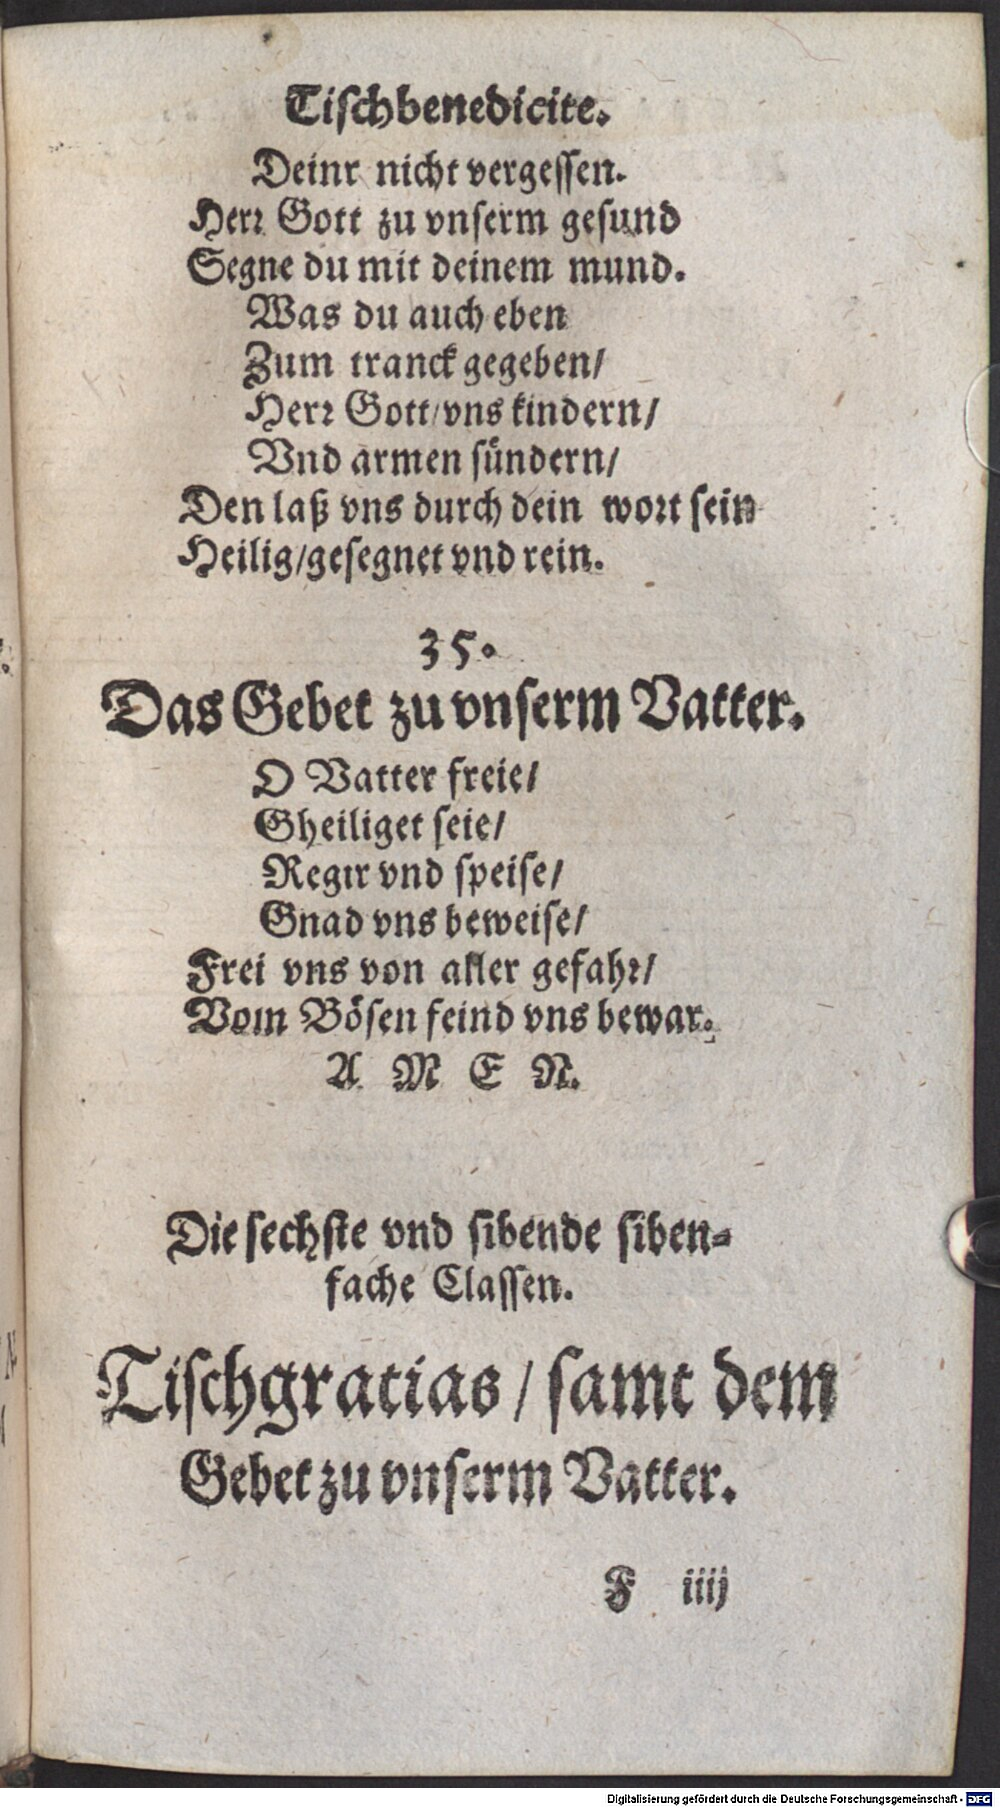 Tiſchbenedicite.
Deinr nicht vergeſſen.
Herꝛ Gott zu vnſerm geſund
Segne du mit deinem mund.
Was du auch eben
Zum tranck gegeben/
Herꝛ Gott/vns kindern/
Vnd armen ſündern/
Den laß vns durch dein woꝛt ſein
Heilig/geſegnet vnd rein.
35.
Das Gebet zu vnſerm Vatter.
O Vatter freie/
Gheiliget ſeie/
Regir vnd ſpeiſe/
Gnad vns beweiſe/
Frei vns von aller gefahꝛ/
Vom Böſen feind vns bewar.
A M E N.
Die ſechſte vnd ſibende ſiben⸗
fache Claſſen.
Tiſchgratias/ ſamt dem
Gebet zu vnſerm Vatter.
F iiij
Digitalisierung gefördert durch die Deutsche Forschungsgemeinschaft - DFG